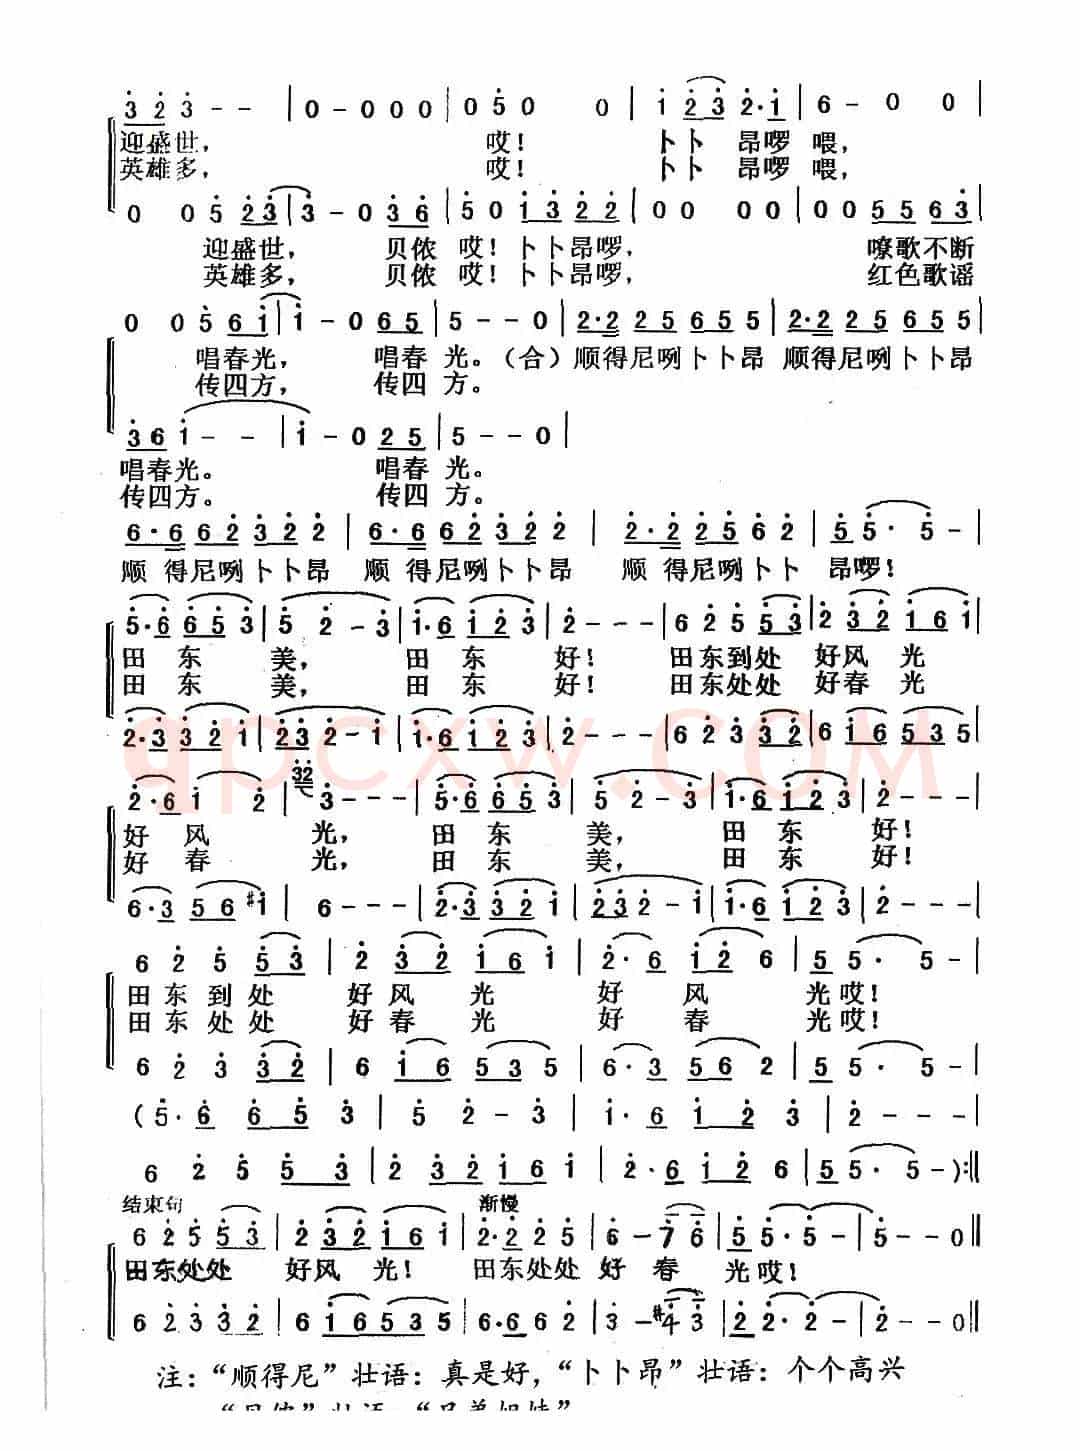 3 2 3 - - | 0 - 0 0 0 | 0 5 0 0 | 1 2 3 2 · 1 | 6 - 0 0 |
迎盛世， 哎！ 卜卜 昂啰 喂，
英雄多， 哎！ 卜卜 昂啰 喂，
0 0 5 2 3 | 3 - 0 3 6 | 5 0 1 3 2 2 | 0 0 0 0 | 0 0 5 5 6 3 |
迎盛世， 贝侬 哎！卜卜昂啰， 嘹歌不断
英雄多， 贝侬 哎！卜卜昂啰， 红色歌谣
0 0 5 6 1 | 1 - 0 6 5 | 5 - - 0 | 2 · 2 2 5 6 5 5 | 2 · 2 2 5 6 5 5 |
唱春光， 唱春 光。（合）顺得尼咧卜卜昂 顺得尼咧卜卜昂
传四方， 传四 方。
3 6 1 - - | 1 - 0 2 5 | 5 - - 0 |
唱春光。 唱春 光。
传四方。 传四 方。
6 · 6 6 2 3 2 2 | 6 · 6 6 2 3 2 2 | 2 · 2 2 5 6 2 | 5 5 · 5 - |
顺 得尼咧卜卜昂 顺 得尼咧卜卜昂 顺 得尼咧卜卜 昂啰！
5 · 6 6 5 3 | 5 2 - 3 | 1 · 6 1 2 3 | 2 - - - | 6 2 5 5 3 | 2 3 2 1 6 1 |
田 东 美， 田 东 好！ 田东到处 好风 光
田 东 美， 田 东 好！ 田东处处 好春 光
2 · 3 3 2 1 | 2 3 2 - 1 | 1 · 6 1 2 3 | 2 - - - | 6 2 3 3 2 | 6 1 6 5 3 5 |
qpcxw.com
2 · 6 1 2 | 32 3 - - - | 5 · 6 6 5 3 | 5 2 - 3 | 1 · 6 1 2 3 | 2 - - - |
好 风 光， 田 东 美， 田 东 好！
好 春 光， 田 东 美， 田 东 好！
6 · 3 5 6 #1 | 6 - - - | 2 · 3 3 2 1 | 2 3 2 - 1 | 1 · 6 1 2 3 | 2 - - - |
6 2 5 5 3 | 2 3 2 1 6 1 | 2 · 6 1 2 6 | 5 5 · 5 - |
田东到处 好风 光 好 风 光哎！
田东处处 好春 光 好 春 光哎！
6 2 3 3 2 | 6 1 6 5 3 5 | 6 · 3 5 6 2 | 5 5 · 5 - |
( 5 · 6 6 5 3 | 5 2 - 3 | 1 · 6 1 2 3 | 2 - - - |
6 2 5 5 3 | 2 3 2 1 6 1 | 2 · 6 1 2 6 | 5 5 · 5 - ) :||
结束句 渐慢
6 2 5 5 3 | 2 3 2 1 6 1 | 2 · 2 2 5 | 6 - 7 6 | 5 5 · 5 - | 5 - - 0 ||
田东处处 好风 光！ 田东处处 好 春 光哎！
6 2 3 3 2 | 6 1 6 5 3 5 | 6 · 6 6 2 | 3 - #4 3 | 2 2 · 2 - | 2 - - 0 ||
注：“顺得尼”壮语：真是好，“卜卜昂”壮语：个个高兴